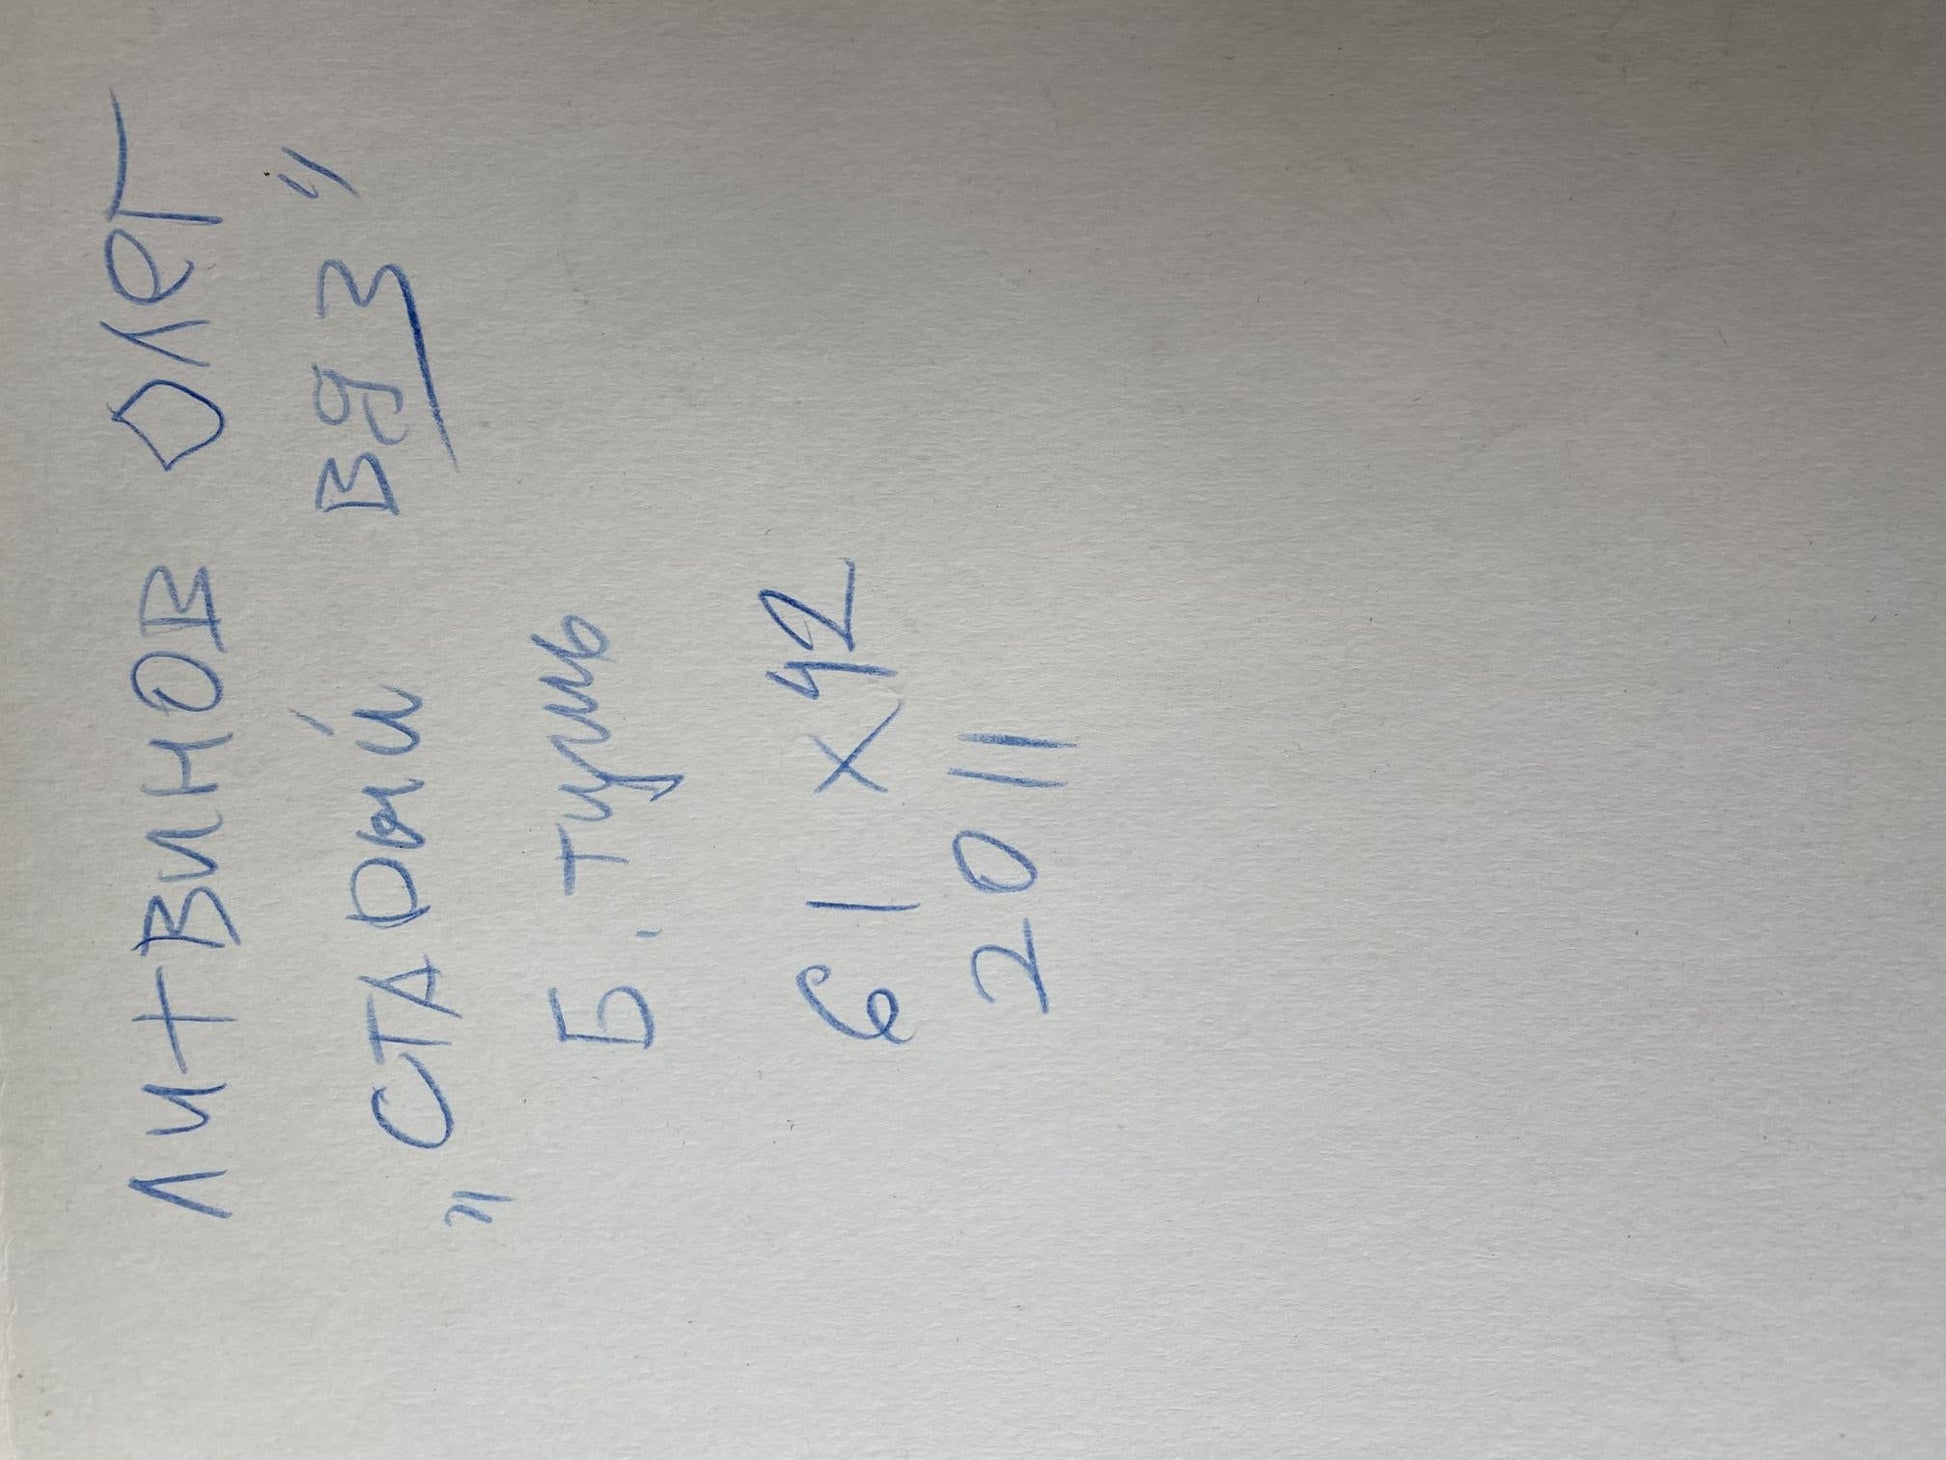 ЛИТВИНОВ ОЛЕГ
„СТАРЫЙ ВЯЗ"
Б. тушь
61 х 42
2011